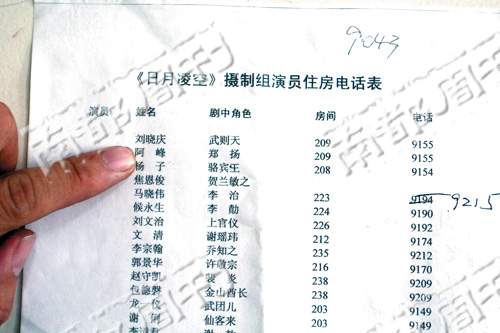 9043
《日月凌空》摄制组演员住房电话表
演员 姓名 剧中角色 房间 电话
刘晓庆 武则天 209 9155
阿峰 郑扬 209 9155
杨子 骆宾王 208 9154
焦恩俊 贺兰敏之
马晓伟 李治 223 9194 9215
候永生 李勣 224 9190
刘文治 上官仪 226 9192
文清 谢瑶 212 9174
李宗翰 乔知之 235 9212
郭景华 许敬宗 216 9170
赵守凯 裴炎 238 9209
包德磐 金山酋长 238 9209
龙 武团儿 203 9149
谢 仙客来 203 9149
南都周刊